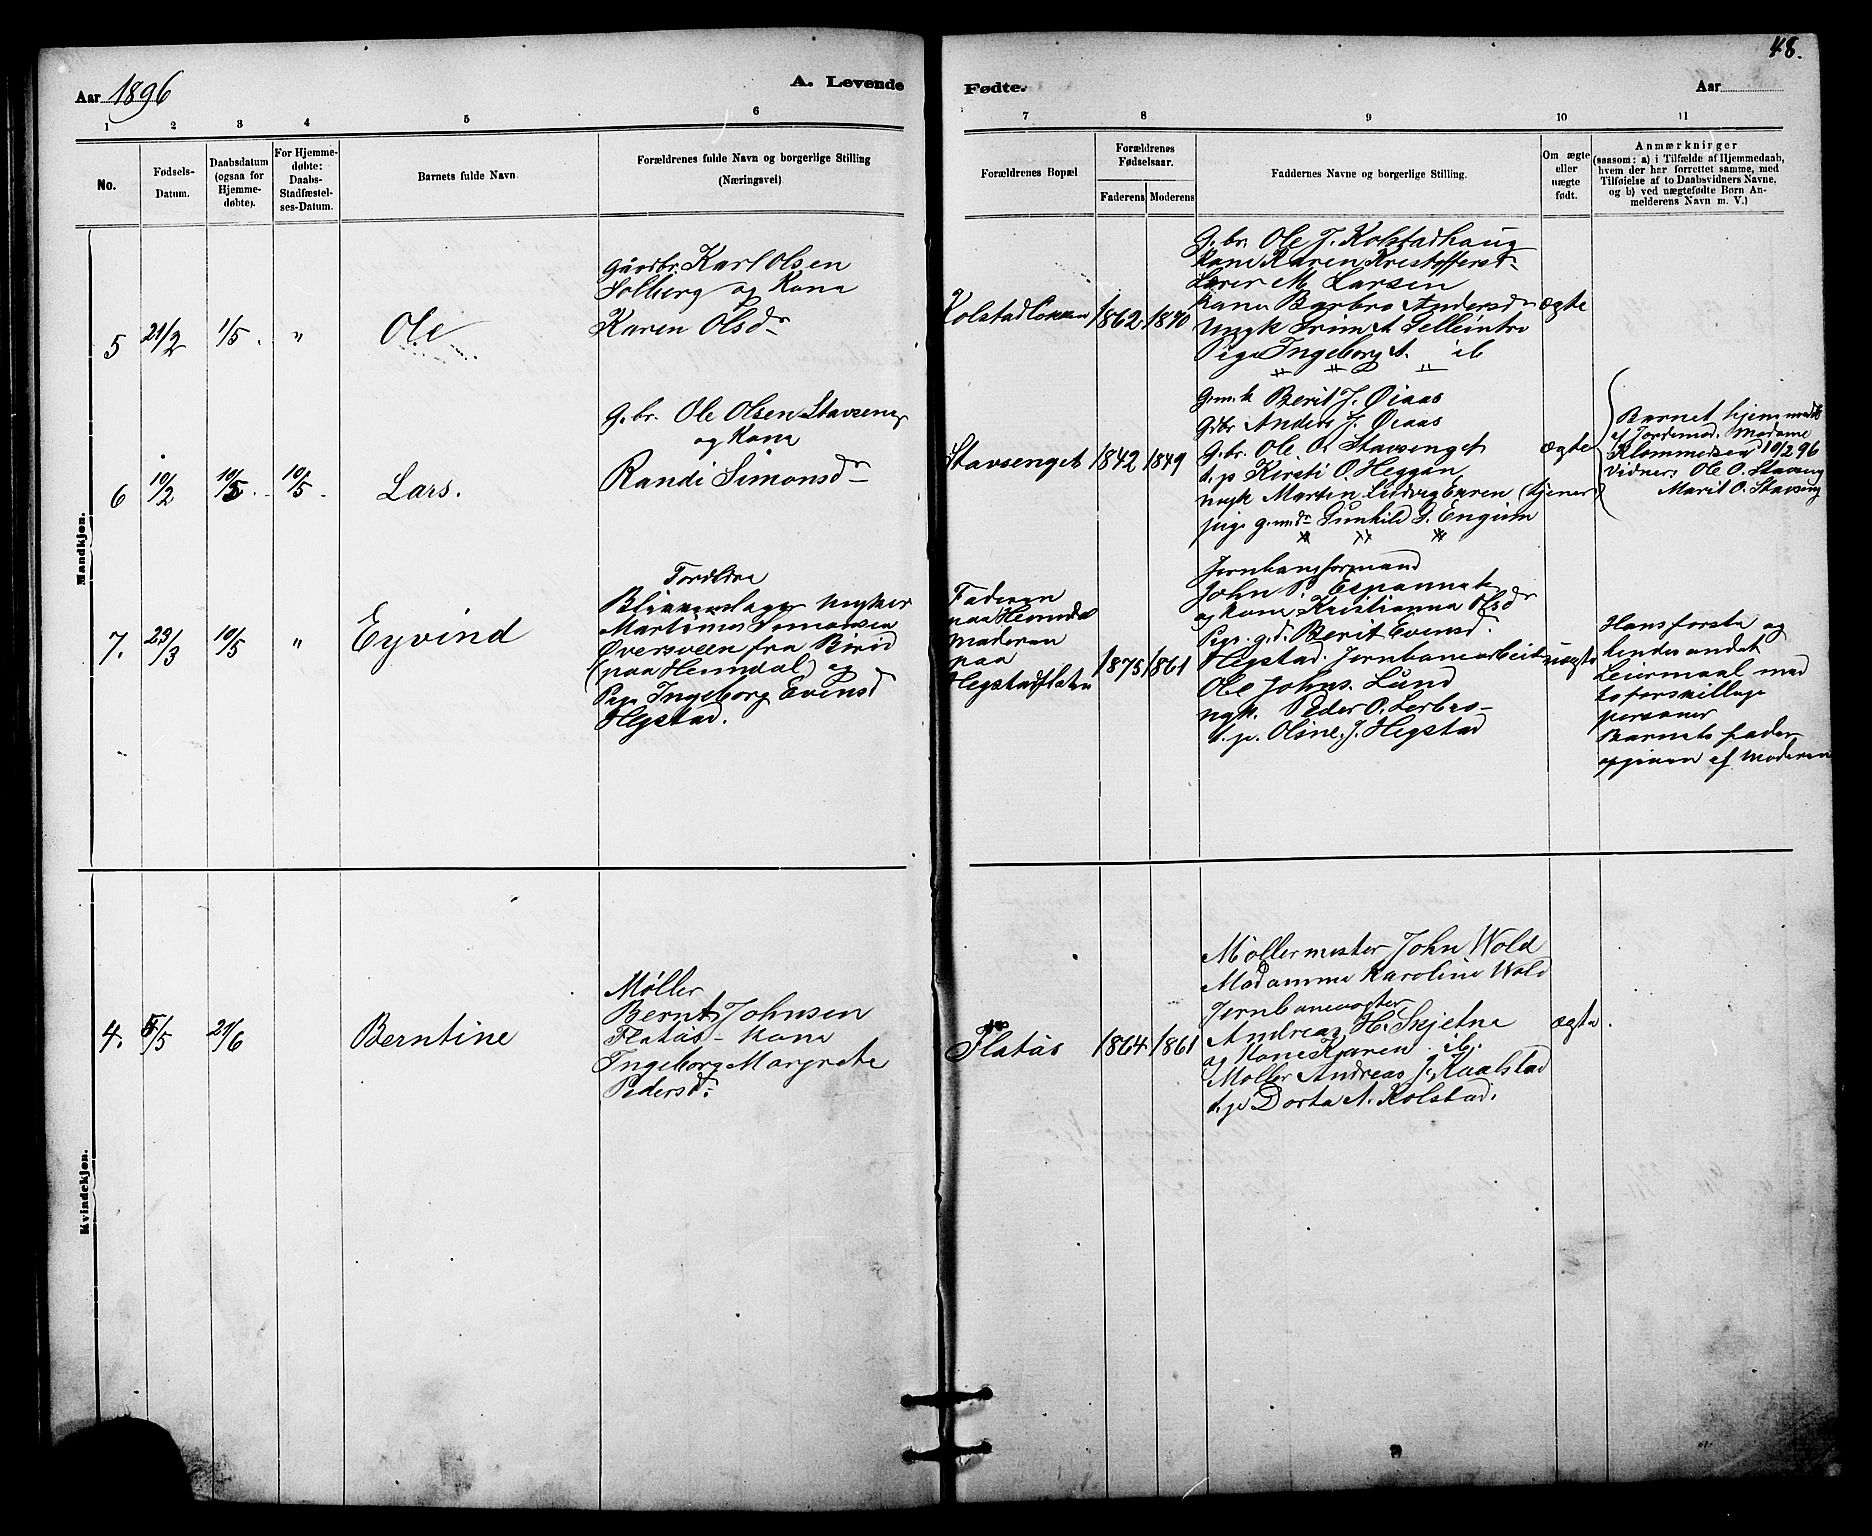 48.
Aar 1896
A. Levende
Fødte.
Aar
1 2 3 4 5 6
7 8 9 10 11
No.
Fødsels-
Datum.
Daabsdatum
(ogsaa for
Hjemme-
døbte).
For Hjemme-
døbte:
Daabs-
Stadfæstel-
ses-Datum.
Barnets fulde Navn
Forældrenes fulde Navn og borgerlige Stilling
(Næringsvei)
Forældrenes Bopæl
Forældrenes
Fødselsaar.
Faderens
Moderens
Faddernes Navne og borgerlige Stilling.
Om ægte
eller
uægte
født.
Anmærkninger
(saasom: a) i Tilfælde af Hjemmedaab,
hvem der har forrettet samme, med
Tilføielse af to Daabsvidners Navne,
og b) ved uægtefødte Børn An-
melderens Navn m. V.)
Mandkjøn.
5 21/2 1/5. " Ole
Gaardbr. Karl Olsen
Solberg og Kona
Karen Olsdr
1862 1870
G.br. Ole J. Kolstadhaug
Kone Karen Kristoffersd.
Lærer M. Larsen
Kone Barbro Andersdr
Pige Ingeborg A. ib
ægte
6 10/2 10/5. 10/5. Lars.
G.br. Ole Olsen Stavseng
og Kona
Randi Simonsdr
Stavsenget 1842 1849
Gmk Berit J. Øiaas
Gdbr Anders J. Øiaas
G.br. Ole O. Stavsenget
t.p Kirsti O. Heggan
ungk Martin Ludvig Euren (tjener)
pige g.m.dr Gunhild G. Engum
ægte
Barnet hjemmedøbt
af Jordemod. Madame
Klommedsen 10/2 96
Vidner: Ole O. Stavseng
Marit O. Stavseng
7. 23/3 10/5 " Eyvind
Forældre
Blikkenslager Ungkar
Martinus Simonsen
Øversveen fra Birid
(paa Heimdal) og
Pige Ingeborg Evensd
Hegstad.
Faderen
paa Heimdal
Moderen
paa
Hegstadflatn
1875 1861
Jernbaneformand
John P. Espaunet
og Kone Kristianna Olsdr
Pige g.d. Berit Evensd.
Hegstad. Jernbanearbeider
Ole Johns. Lund
ugk. Peder O. Lerbro
t.p. Olsine J. Hegstad
uægte
Hans første og
hendes andet
Leiermaal med
to forskillige
personer
Barnets fader
opgiven af Moderen
Kvindekjøn.
4. 5/5 21/6 Berntine
Møller
Bernt Johnsen
Flataas- Kone
Ingeborg Margrete
Pedersdr.
Flataas 1864 1861
Møllermester John Wold
Madamme Karoline Wold
Jernbanevogter
Andreas H. Skjetne
og Kone Karen ib.
Møller Andreas J. Kaalstad
t.p Dorta A. Kolstad.
ægte.